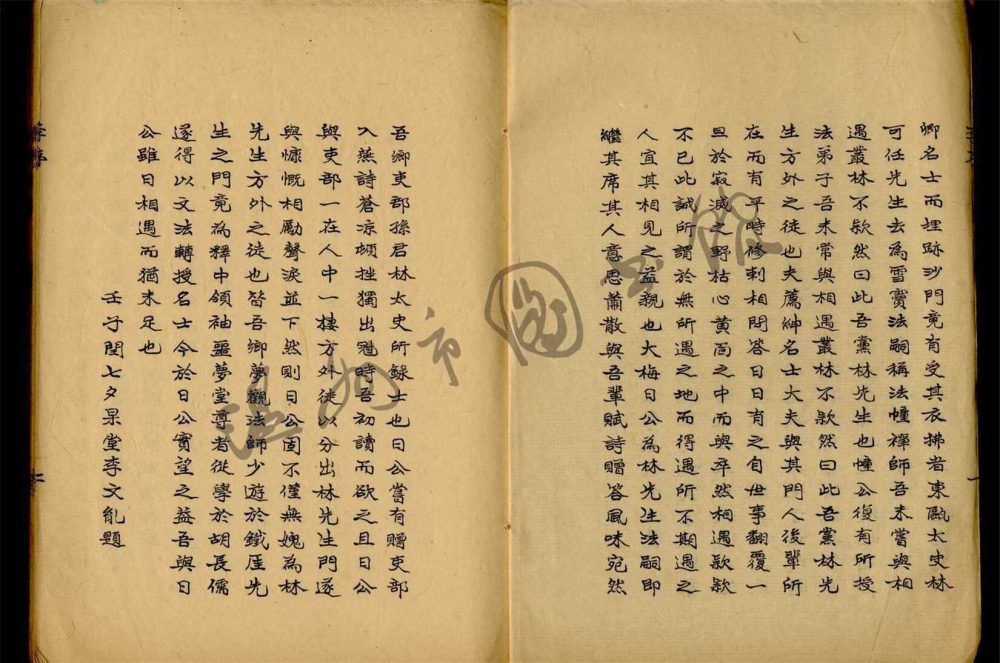 卿名士而埋跡沙門竟有受其衣拂者東甌太史林
可任先生去為雪竇法嗣稱法幢禪師吾未嘗與相
遇叢林不歉然曰此吾黨林先生也幢公復有所授
法弟子吾未常與相遇叢林不歉然曰此吾黨林先
生方外之徒也夫薦紳名士大夫與其門人後輩所
在而有平時修刺相問答曰日有之自世事翻覆一
旦於寂滅之野枯心黃面之中而與卒然相遇歉歉
不已此誠所謂於無所遇之地而得遇所不期遇之
人宜其相見之益親也大梅日公為林先生法嗣即
繼其席其人意思蕭散與吾輩賦詩贈答風味宛然
吾鄉吏部孫君林太史所錄士也日公嘗有贈吏部
入燕詩蒼凉頓挫獨出當時吾初讀而欲之且日公
與吏部一在人中一棲方外徒以分出林先生門遂
與慷慨相勵聲淚並下然則日公固不僅無媿為林
先生方外之徒也昔吾鄉夢觀法師少遊於鐵厓先
生之門竟為釋中領袖噩夢堂尊者從學於胡長儒
遂得以文法轉授名士今於日公實望之益吾與日
公雖日相遇而猶未足也
壬子閏七夕杲堂李文胤題
溫州市圖書館